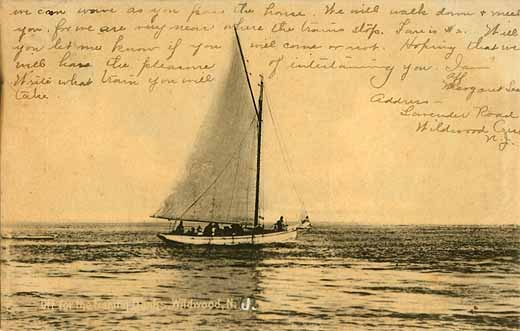 we can wave as you pass the house. We will walk down & meet
you, for we are very near where the trains stop. Fare is $2. Will
you let me know if you will come or not. Hoping that we
will have the pleasure of intertaining you. I am
Write what train you will
take.
Margaret Lee
Address -
Lavender Road
Wildwood
N.J.
Off for the Fishing Banks, Wildwood, N.J.